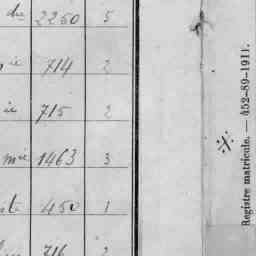 du 2260 5
714 2
ie 715 2
mie 1463 3
ste 450 1
716 2
Registre matricule. — 452-89-1911.